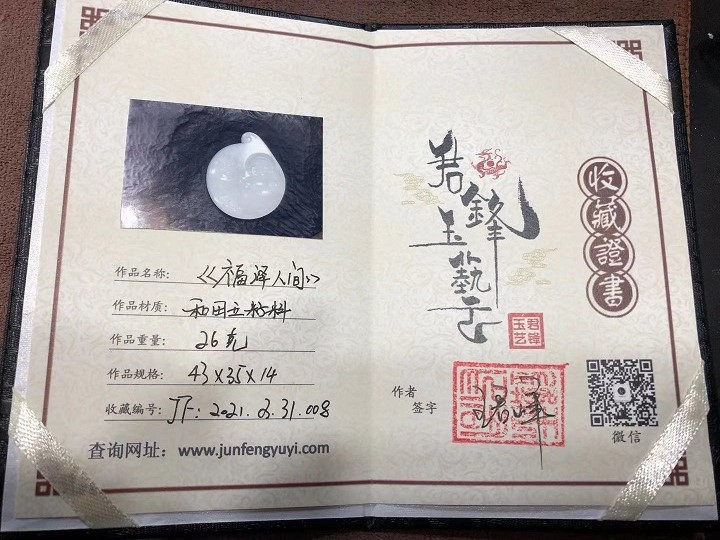 作品名称：《福泽人间》
作品材质：和田玉籽料
作品重量：26克
作品规格：43×35×14
收藏编号：JF：2021.3.31.008
查询网址：www.junfengyuyi.com
君鋒玉藝
君锋玉艺
收藏證書
作者
签字
微信